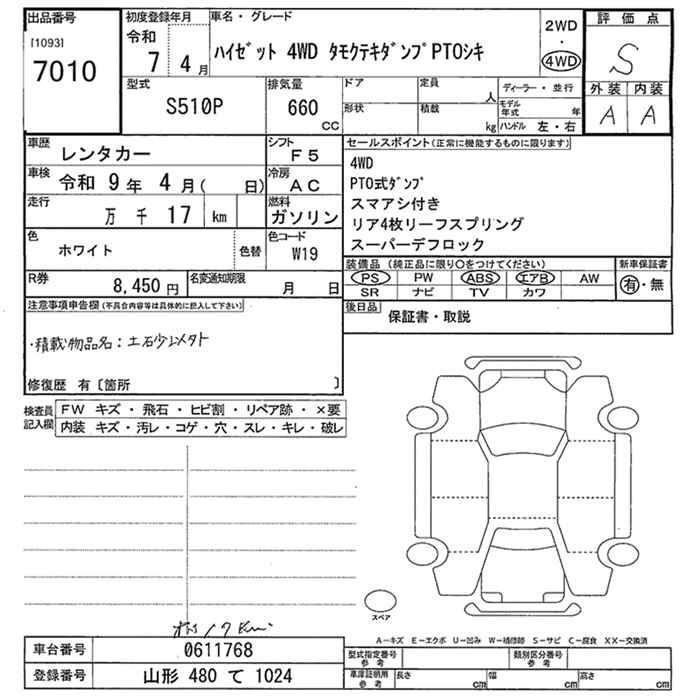 出品番号 初度登録年月 車名・グレード 評価点
[1093] 令和 2WD
7010 7 4月 ハイゼット 4WD タモクテキダンプPTOシキ ・ S
4WD
型式 排気量 ドア 定員 人 ディーラー・並行 外装 内装
S510P 660 CC 形状 積載 kg モデル年式 年 A A
ハンドル 左・右
車歴 レンタカー シフト F5 セールスポイント(正常に機能するものに限ります)
車検 令和 9年 4月( 日) 冷房 AC 4WD
PTO式ダンプ
走行 万 千 17 km 燃料 ガソリン スマアシ付き
リア4枚リーフスプリング
色 ホワイト 色替 色コード W19 スーパーデフロック
R券 8,450円 名変通知期限 月 日 装備品(純正品に限り○をつけてください) 新車保証書
PS PW ABS エアB AW 有・無
SR ナビ TV カワ
注意事項申告欄(不具合内容等は具体的に記入して下さい) 後日品 保証書・取説
・積載物品名:土石砂以外
修復歴 有〔箇所 〕
検査員記入欄 FW キズ・飛石・ヒビ割・リペア跡・×要
内装 キズ・汚レ・コゲ・穴・スレ・キレ・破レ
スペア
17km
A−キズ E−エクボ U−凹み W−補修跡 S−サビ C−腐食 XX−交換済
車台番号 0611768 型式指定番号 参考 類別区分番号 参考
登録番号 山形 480 て 1024 車庫証明用 参考 長さ cm 幅 cm 高さ cm